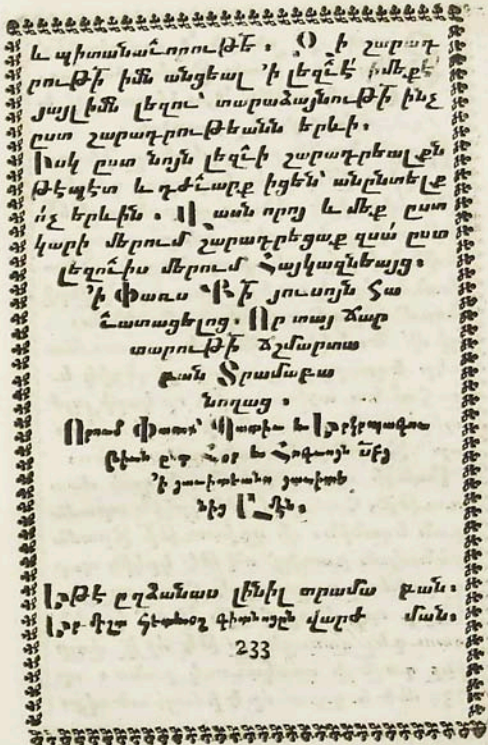 և պիտանաւ̃որութե̃ ։ Զ ի շարադ
րութի̃ իմն̃ անցեալ ՚ի լեզւէ̃ իմեքէ̃
յայլ իմն̃ լեզու՝ տարաձայնութի̃ ինչ
ըստ շարադրութեանն երևի։
Իսկ ըստ նոյն լեզւի̃ շարադրեալքն
թէպէտ և դժւա̃րք իցեն՝ անընտելք
ո՛չ երևին ։ Վ ասն որոյ և մեք ըստ
կարի մերում շարադրեցաք զսա՛ ըստ
լեզուի̃ս մերում Հայկազնեայց։
՚ի Փառս Ք̃ի յուսոյն հա
ւա̃տացելոց. Որ տայ ճար
տարութի̃ ճշմարտա
քան Տրամաբա
նողաց ։
Որում Փառք՝ Պատիւ և Երկրպագու
թիւն ընդ Հօր և Հոգւոյն սր̃բյ
՚ի յաւիտեանս յաւիտե
նից Ամէն։
Եթէ ըղձանաս լինիլ տրամա բան։
Լեր միշտ հետևօղ գիտնոցըն վարժ ման։
233